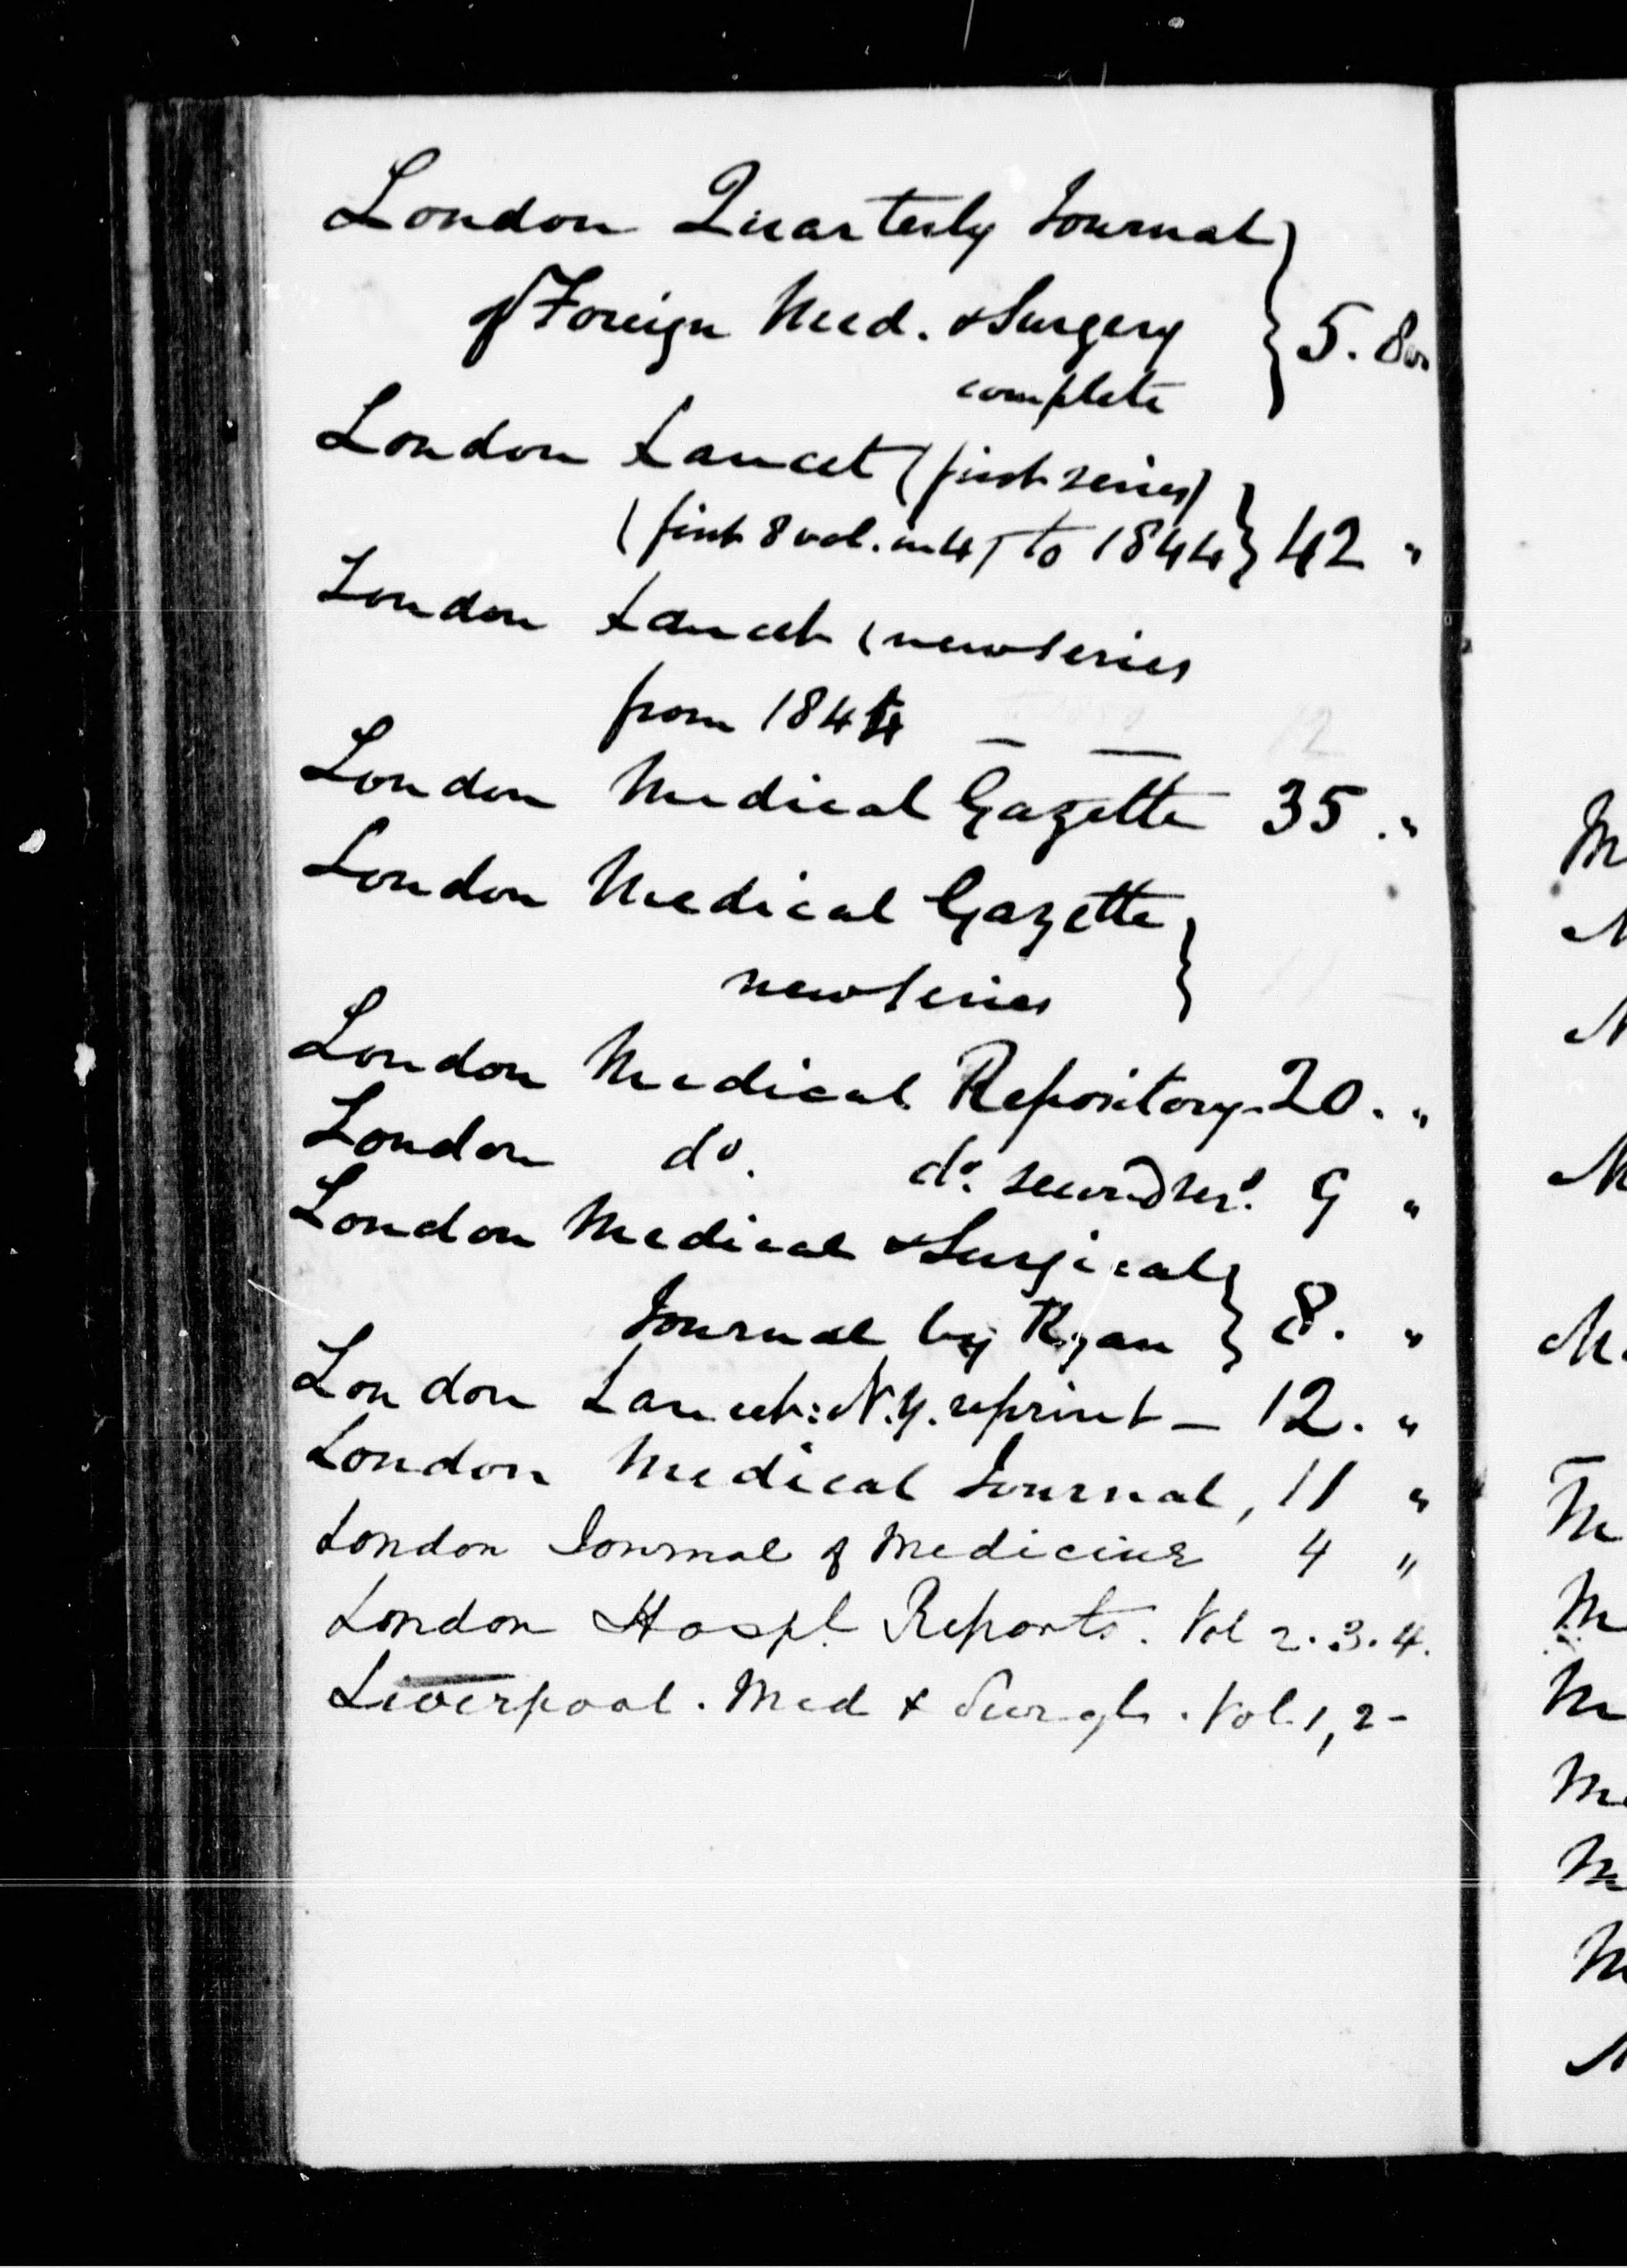 London Quarterly Journal
of Foreign Med. & Surgery } 5. 8vo
complete
London Lancet (first series)
(first 8 vol. in 4) to 1844 } 42 "
London Lancet (new series
from 1844 — —
London Medical Gazette 35 . "
London Medical Gazette }
new series
London Medical Repository - 20 . "
London do. do. second ser. 9 "
London Medical & Surgical
Journal by Ryan } 8. "
London Lancet: N.Y. reprint — 12. "
London Medical Journal, 11 "
London Journal of Medicine 4 "
London Hospl Reports. Vol 2. 3. 4.
Liverpool. Med & Surgl. Vol. 1, 2 -